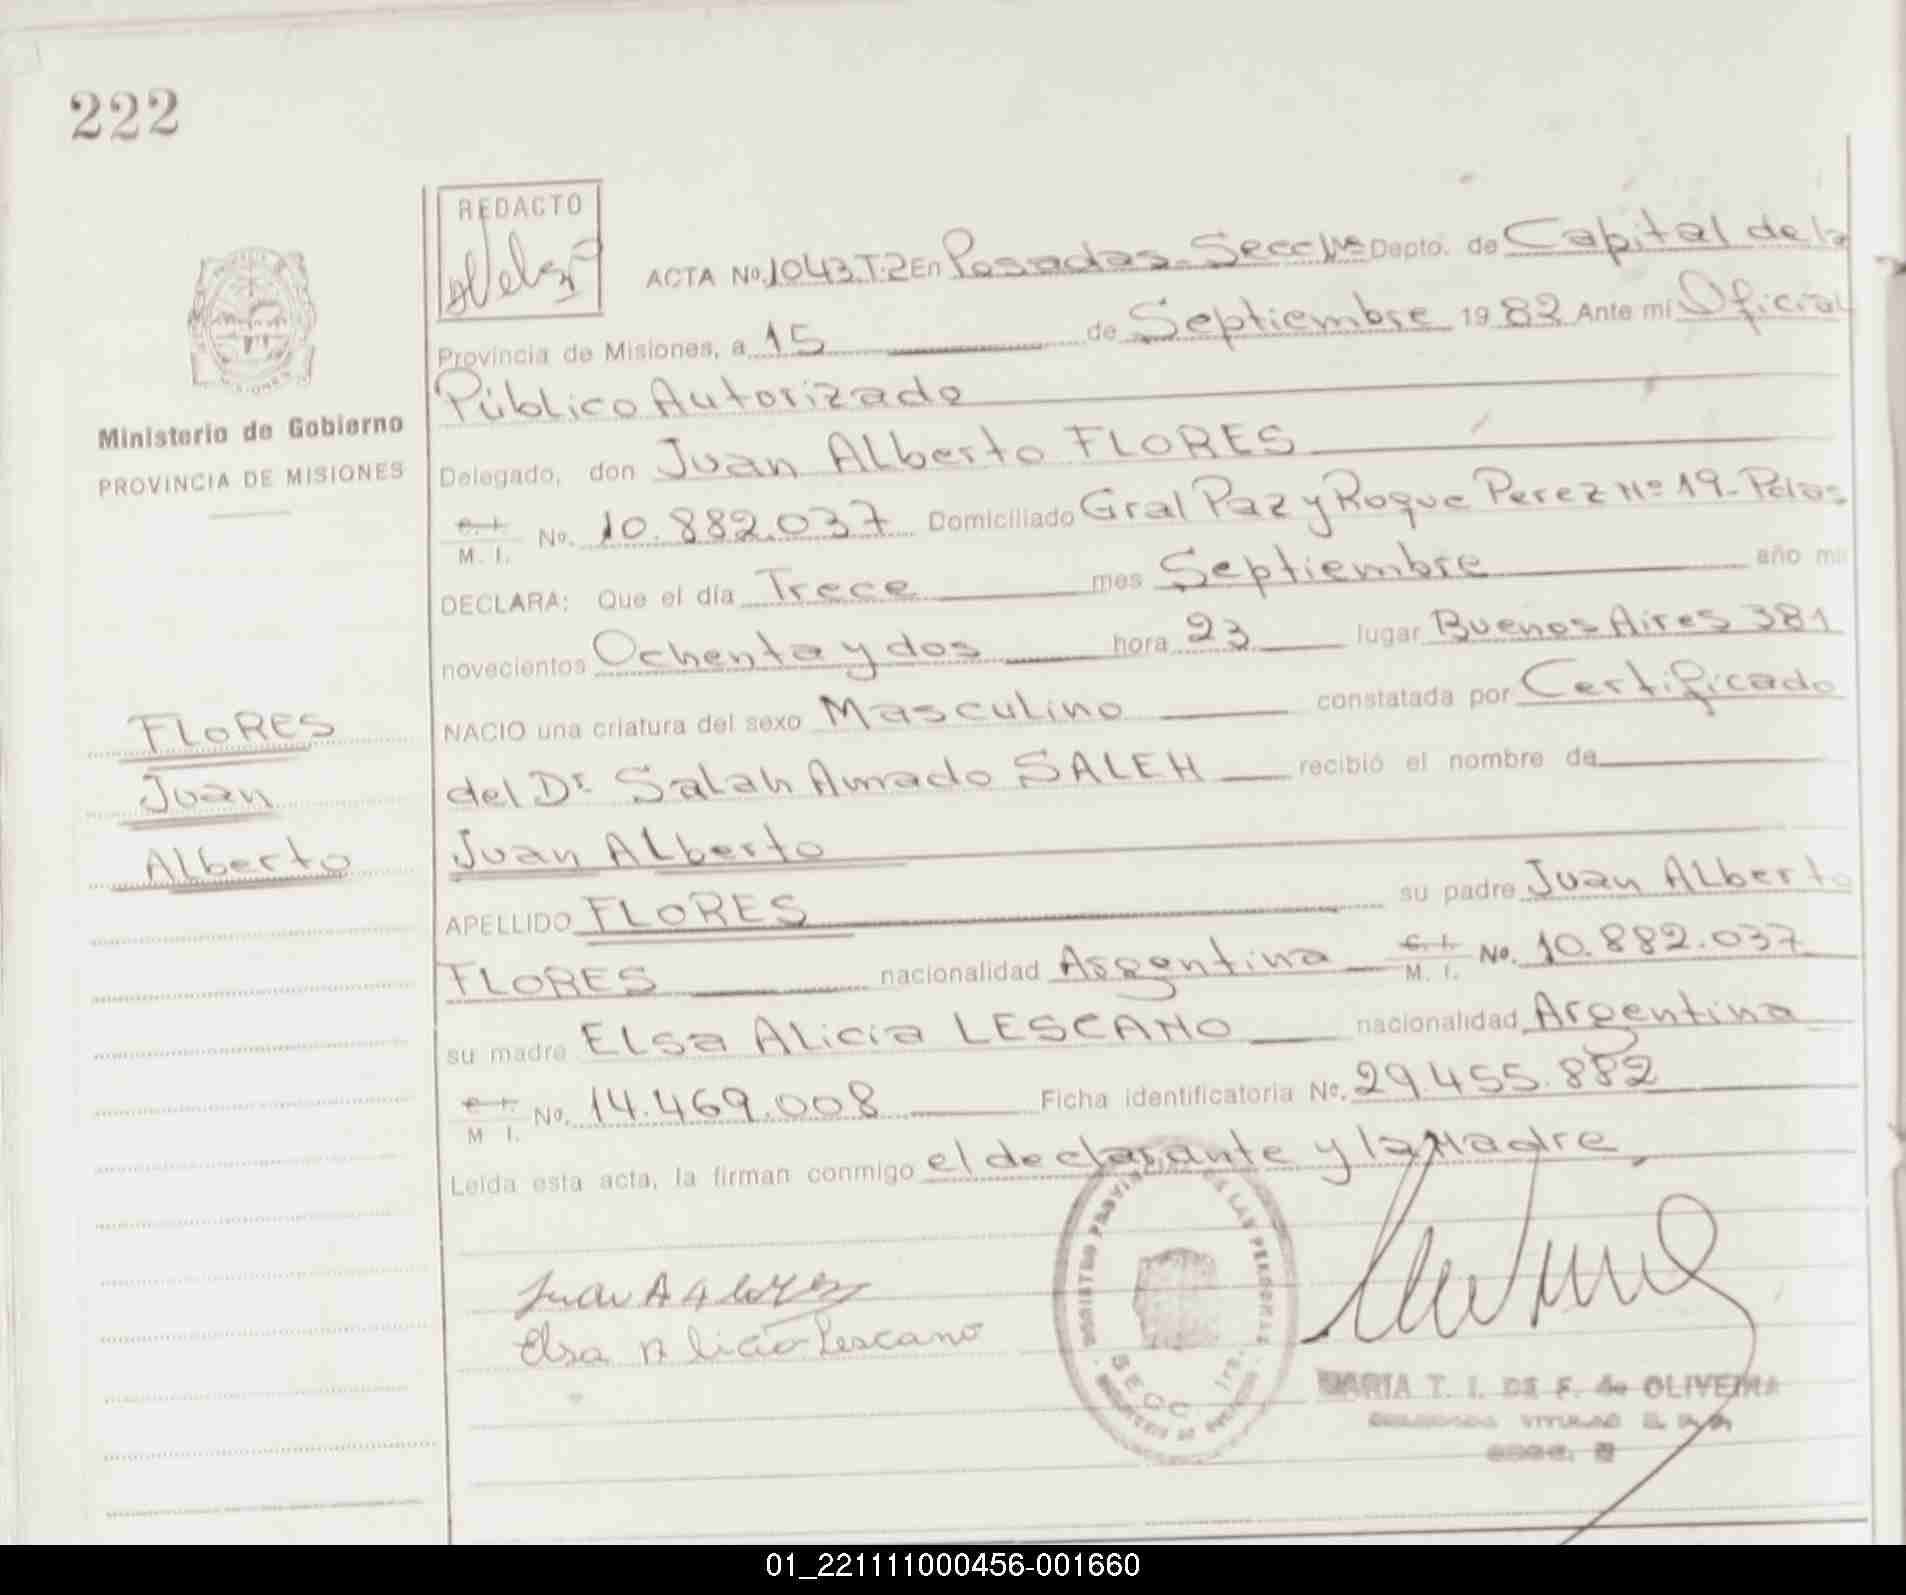 222
REDACTO
ACTA No. 1043.T.2 En Posadas. Secc 1ra Depto. de Capital de la
Provincia de Misiones, a 15 de Septiembre 19 82 Ante mi Oficial
Público Autorizado
Delegado, don Juan Alberto FLORES
C. I.
M. I. No. 10.882.037 Domiciliado Gral Paz y Roque Perez Nº 19- Pdas
DECLARA: Que el día Trece mes Septiembre año mil
novecientos Ochenta y dos hora 23 lugar Buenos Aires 381
NACIO una criatura del sexo Masculino constatada por Certificado
del Dr. Salah Amado SALEH recibió el nombre de
Juan Alberto
APELLIDO FLORES su padre Juan Alberto
FLORES nacionalidad Argentina C. I.
M. I. No. 10.882.037
su madre Elsa Alicia LESCANO nacionalidad Argentina
C. I.
M. I. No. 14.469.008 Ficha identificatoria No. 29.455.882
Leída esta acta, la firman conmigo el declarante y la Madre.
Ministerio de Gobierno
PROVINCIA DE MISIONES
FLORES
Juan
Alberto
MISIONES
Juan A Flores
Elsa Alicia Lescano
REGISTRO PROVINCIAL DE LAS PERSONAS
SECC 1ra.
MARIA T. I. DE F. de OLIVEIRA
01_221111000456-001660